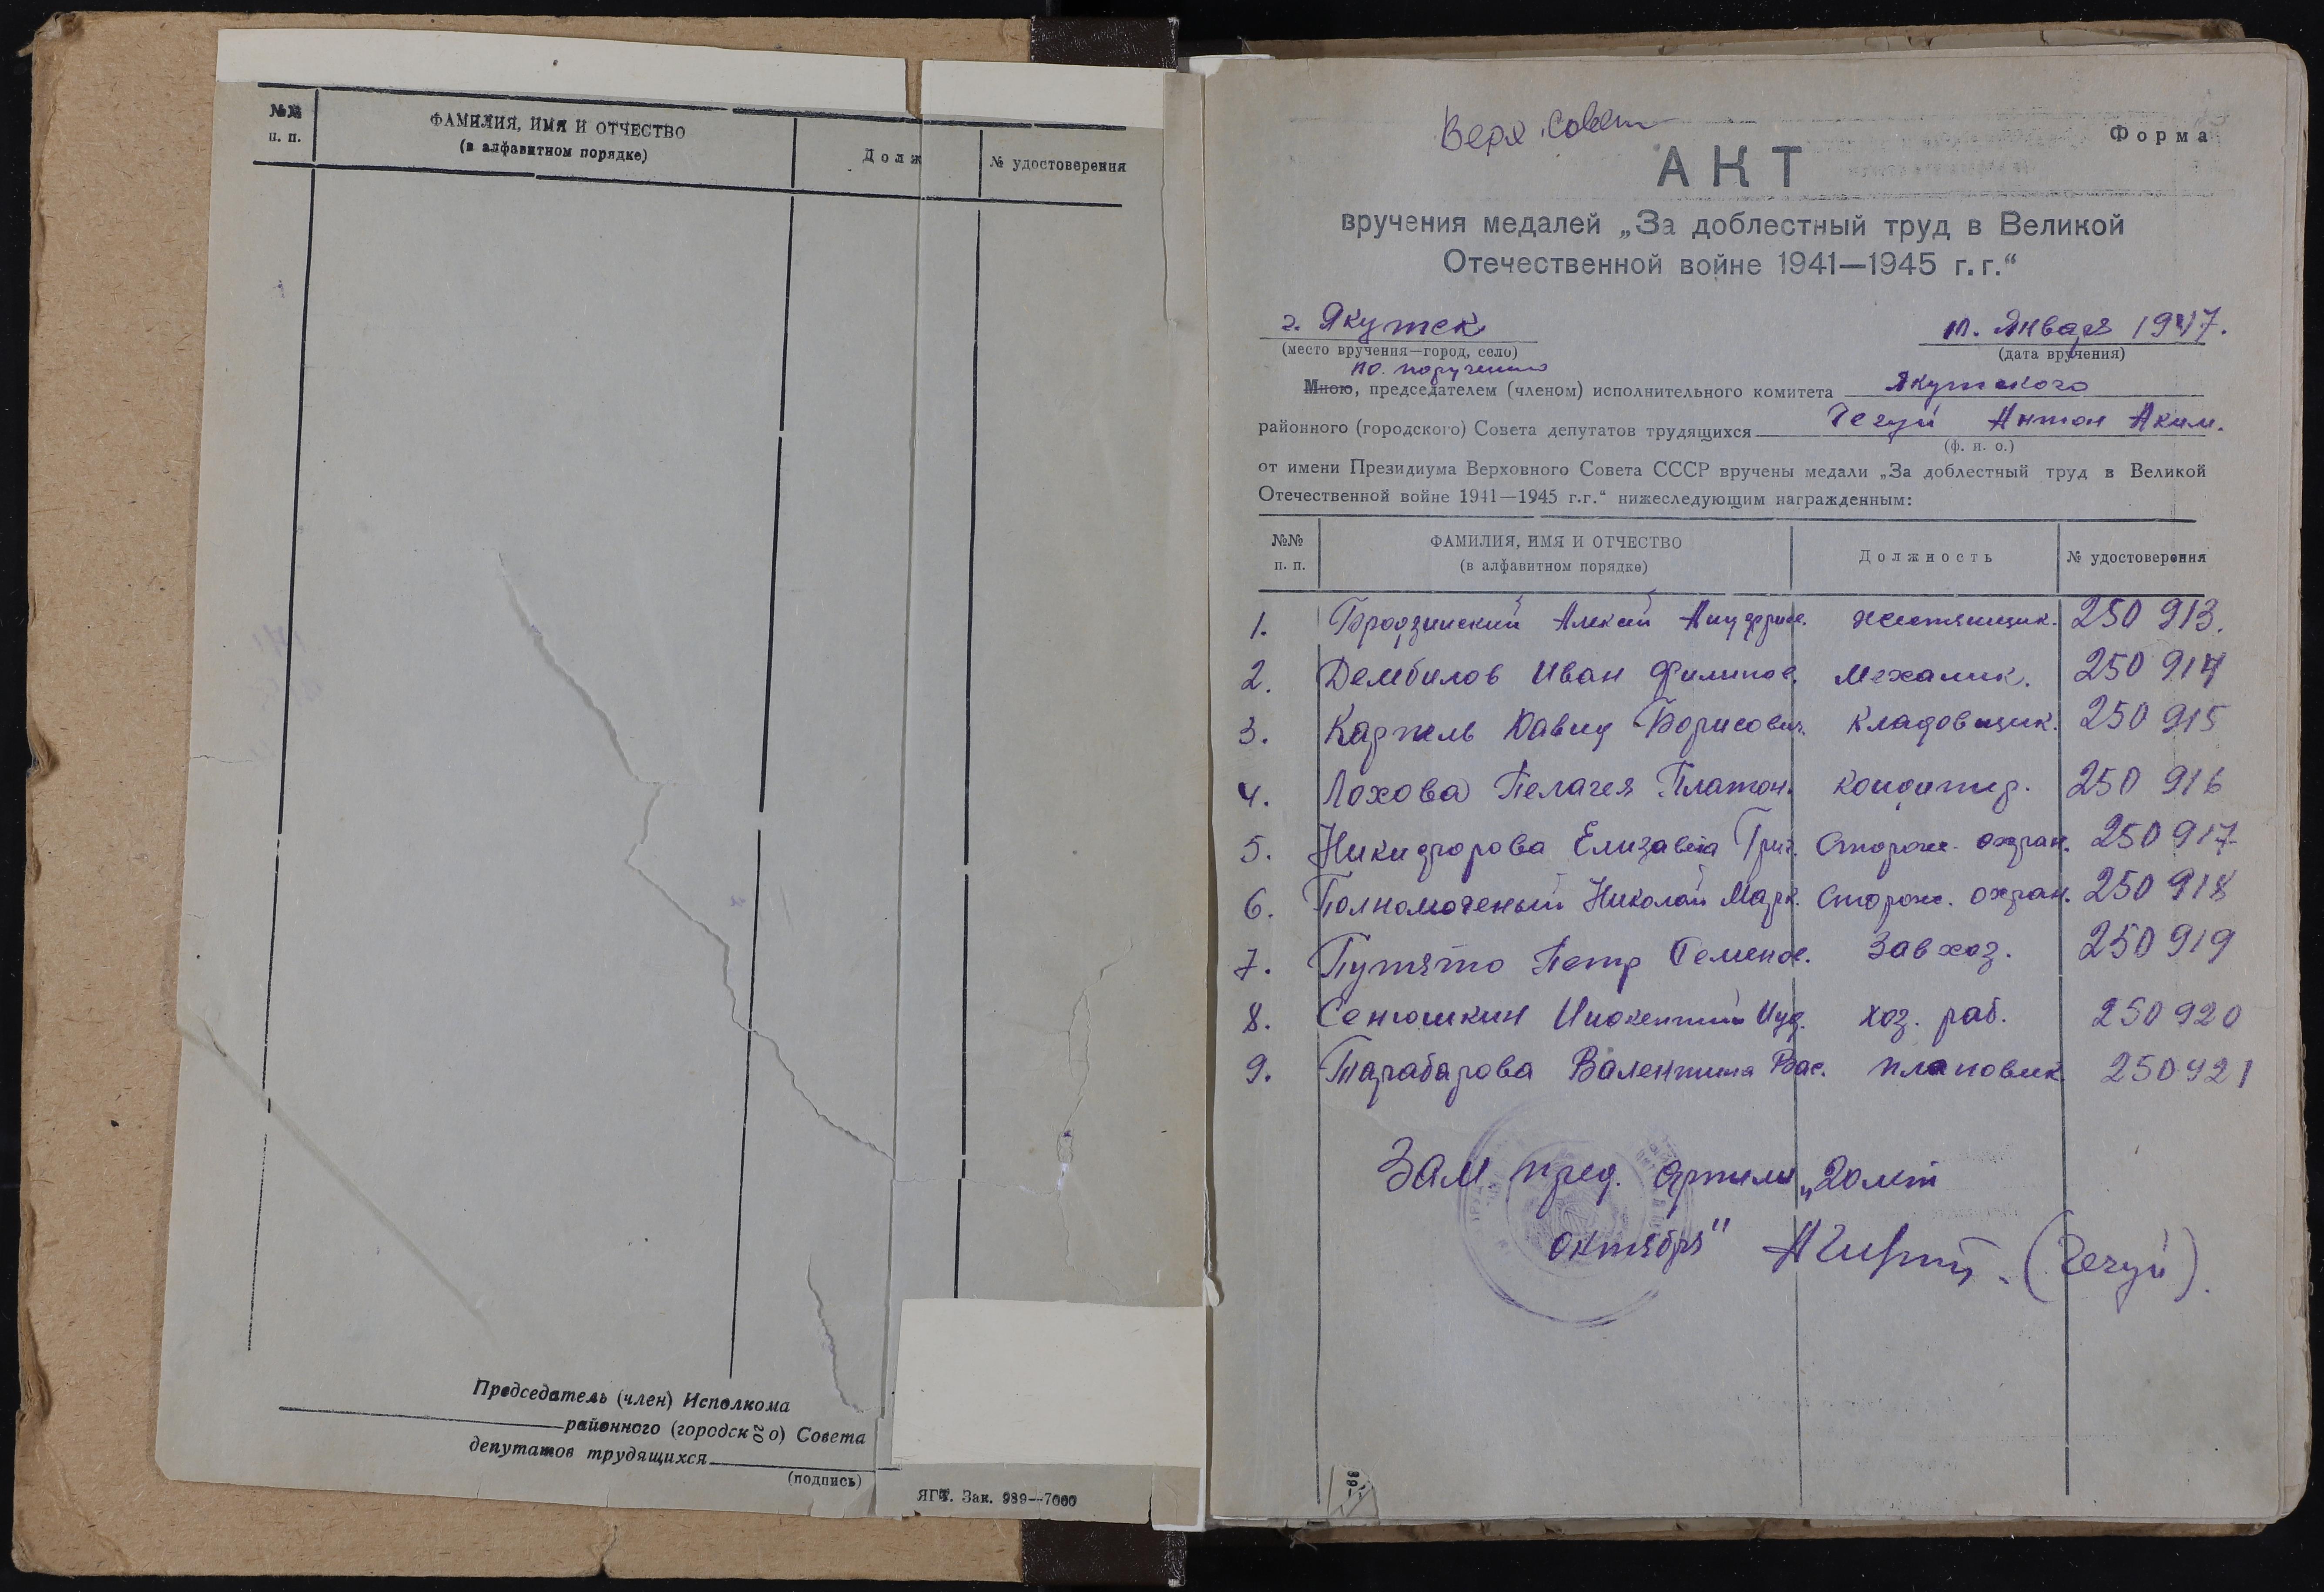 №№
п. п.
ФАМИЛИЯ, ИМЯ И ОТЧЕСТВО
(в алфавитном порядке)
Долж
№ удостоверения
Председатель (член) Исполкома
районного (городского) Совета
депутатов трудящихся
(подпись)
ЯГТ. Зак. 989—7000
Верх. Совет
Форма
АКТ
вручения медалей „За доблестный труд в Великой
Отечественной войне 1941—1945 г.г.“
г. Якутск
Января 1947.
(место вручения—город, село)
(дата вручения)
по поручению
Мною, председателем (членом) исполнительного комитета Якутского
районного (городского) Совета депутатов трудящихся Чечуй Антон Аким.
(ф. и. о.)
от имени Президиума Верховного Совета СССР вручены медали „За доблестный труд в Великой
Отечественной войне 1941—1945 г.г.“ нижеследующим награжденным:
№№
п. п.
ФАМИЛИЯ, ИМЯ И ОТЧЕСТВО
(в алфавитном порядке)
Должность
№ удостоверения
1. Бродзинский Алексей жестянщик. 250 913.
2. Дембилов Иван Филипов. механик. 250 914
3. Картель Давид Борисович. кладовщик. 250 915
4. Лохова Пелагея Платон. кондитер. 250 916
5. Никифорова Елизавета Григ. Сторож. охран. 250 917
6. Полномоченый Николай Марк. Сторож. охран. 250 918
7. Путято Петр Семенов. Завхоз. 250 919
8. Сенюшкин Инокентий хоз. раб. 250 920
9. Тарабарова Валентина Вас. плановик 250921
Зам. пред. артели „20 лет
октября" (Чечуй).